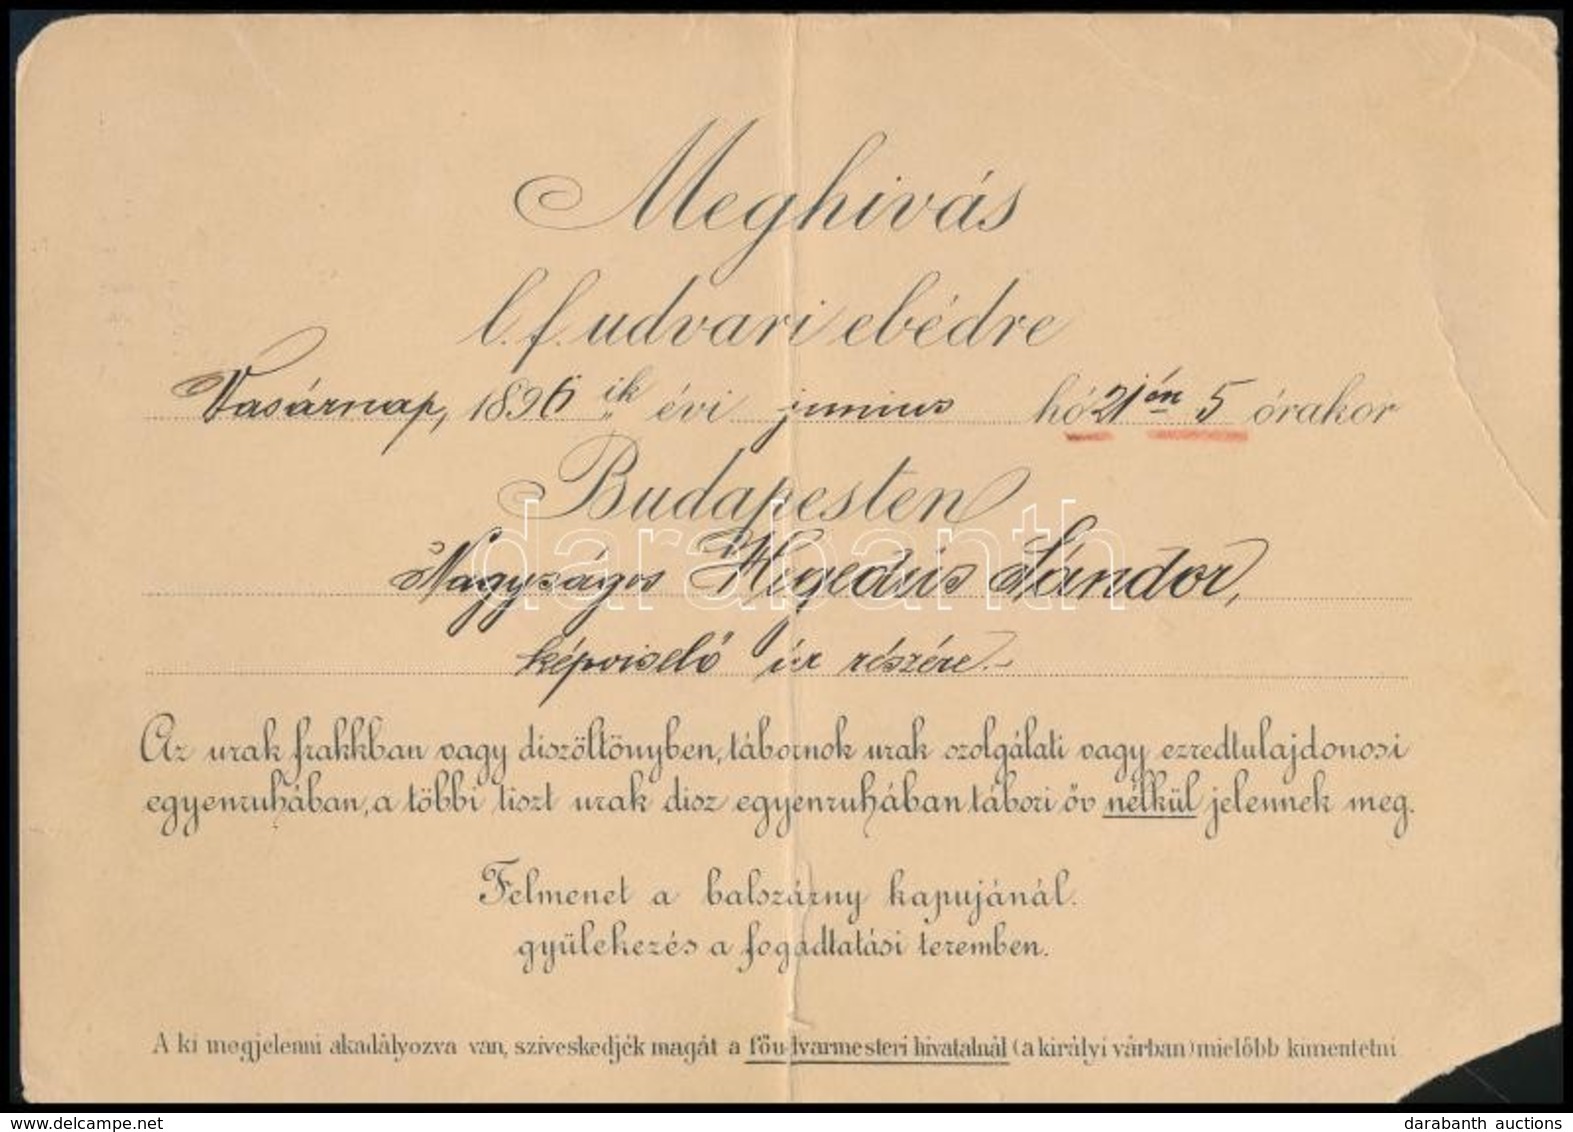 Meghivás
l. f. udvari ebédre
Vasárnap, 1896 ik évi junius hó 21 én 5 órakor
Budapesten
Nagyságos Hegedüs Sándor,
képviselő úr részére.
Az urak frakkban vagy diszöltönyben, tábornok urak szolgálati vagy ezredtulajdonosi
egyenruhában, a többi tiszt urak disz egyenruhában tábori öv nélkül jelennek meg.
Felmenet a balszárny kapujánál.
gyülekezés a fogadtatási teremben.
A ki megjelenni akadályozva van, sziveskedjék magát a főudvarmesteri hivatalnál (a királyi várban) mielőbb kimentetni
darabanth
darabanth auctions
delcampe.net